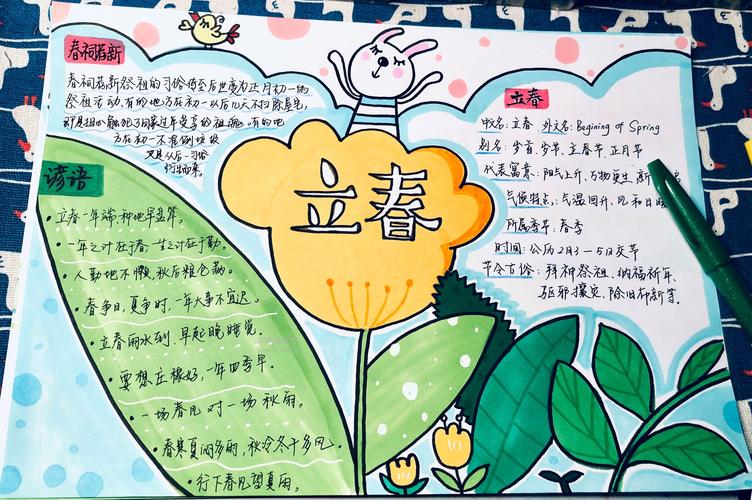 春祠荐新
春祠荐新祭祖的习俗传至后世变为正月初一的
祭祖活动,有的地方在初一以后几天不扫除屋宅,
过年受享的祖魂。有的地
方在初一不准倒垃圾
又是从后一习俗
衍生而来。
谚语
立春一年端,种地早盘算。
一年之计在于春,一生之计在于勤。
人勤地不懒,秋后粮仓满。
春争日,夏争时,一年大事不宜迟。
立春雨水到,早起晚睡觉。
要想庄稼好,一年四季早。
一场春风对一场秋雨。
春寒夏闷多雨,秋冷冬干多风。
行下春风望夏雨。
立春
立春
中名:立春 外文名:Begining of Spring
别名:岁首、岁节、立春节、正月节
代表寓意:阳气上升、万物更生、新
气候特点:气温回升、风和日暖
所属季节:春季
时间:公历2月3—5日交节
节令古俗:拜神祭祖、纳福祈年、
驱邪攘灾、除旧布新等。